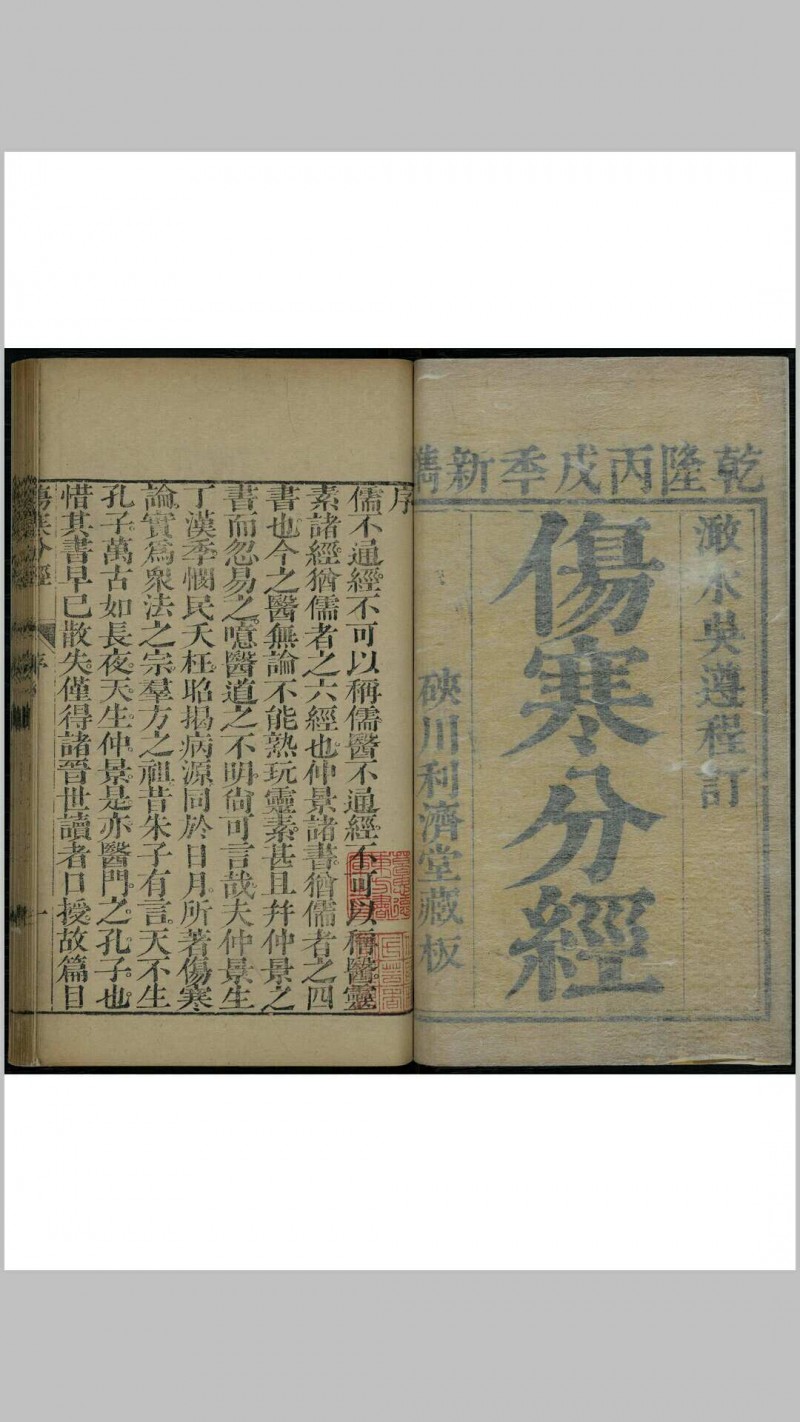 乾隆丙戌季新鐫
澉水吳遵程訂
傷寒分經
硤川利濟堂藏板
序
儒不通經不可以稱儒醫不通經不可以稱醫靈
素諸經猶儒者之六經也仲景諸書猶儒者之四
書也今之醫無論不能熟玩靈素甚且幷仲景之
書而忽易之噫醫道之不明尙可言哉夫仲景生
丁漢季憫民夭枉昭揭病源同於日月所著傷寒
論實爲衆法之宗羣方之祖昔朱子有言天不生
孔子萬古如長夜天生仲景是亦醫門之孔子也
惜其書早已散失僅得諸晉世讀者口授故篇目
傷寒分經 序 一